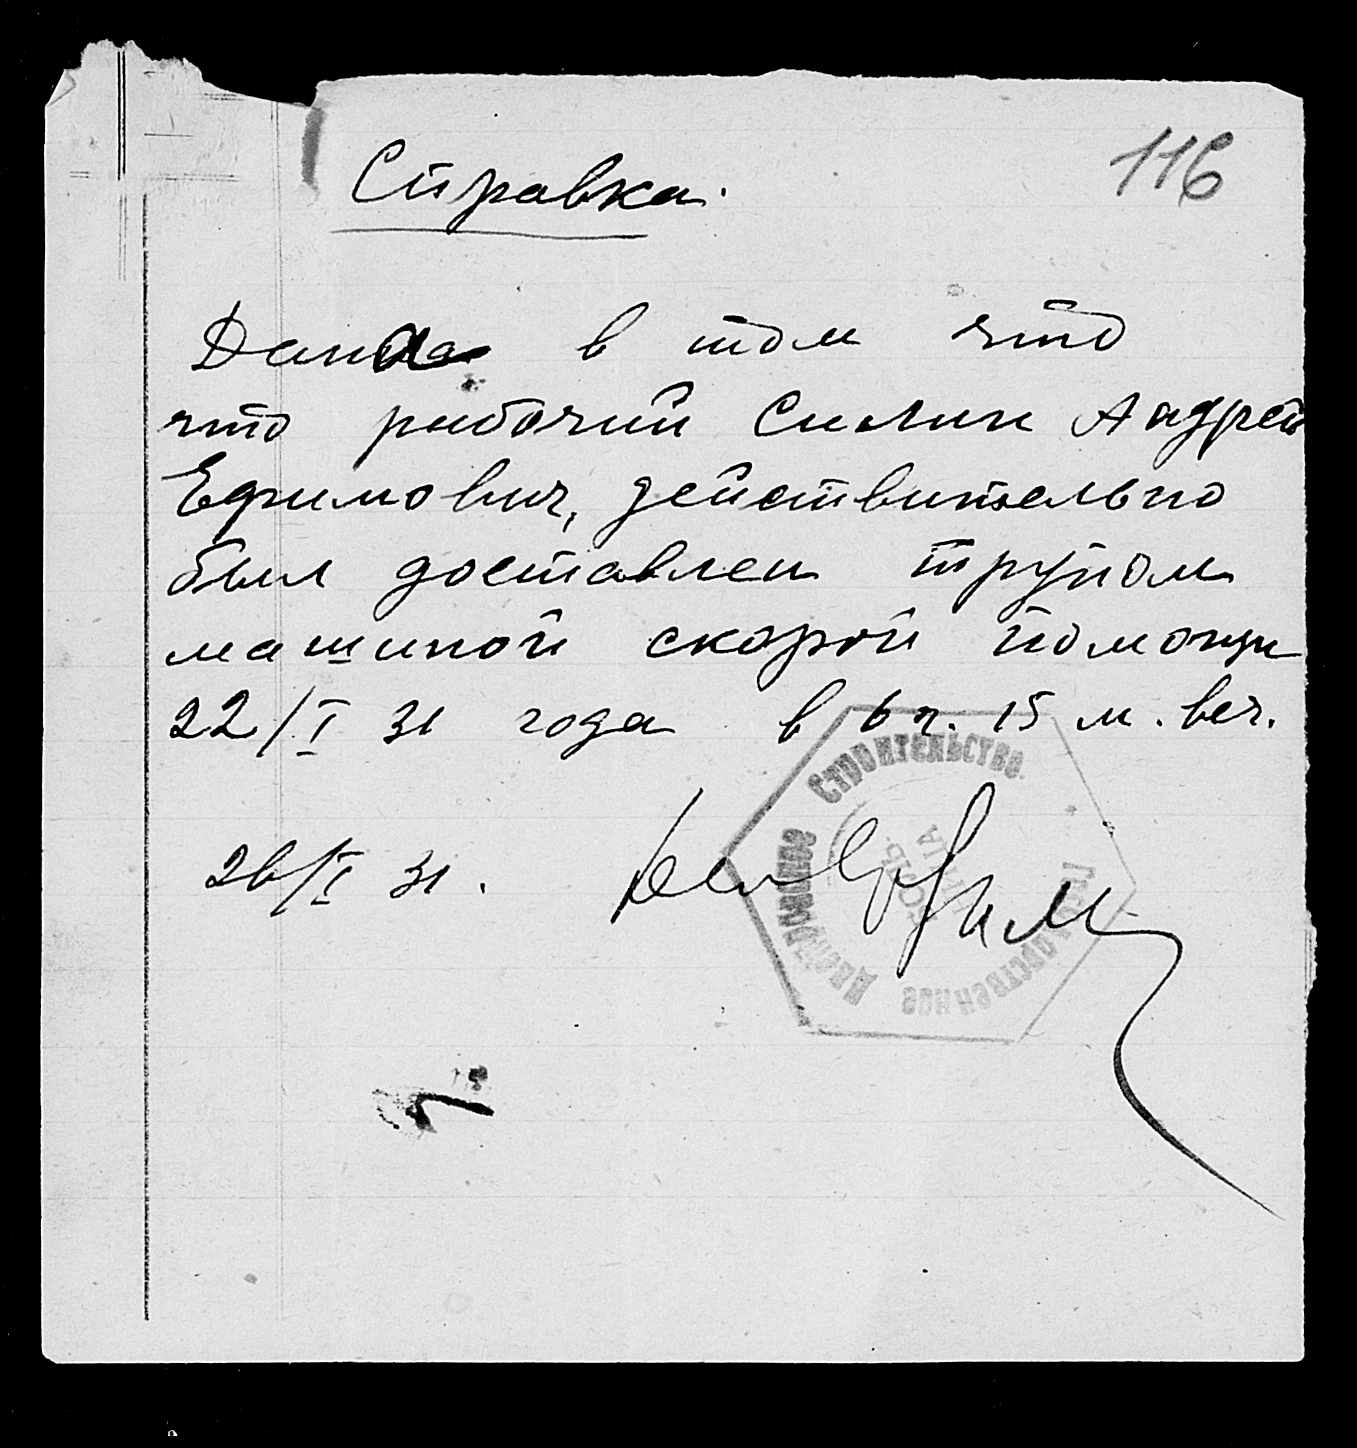 116
Справка.
Дана в том что
что рабочий Силин Андрей
Ефимович, действительно
был доставлен трупом
машиной скорой помощи
22/I 31 года в 6 ч. 15 м. веч.
26/I 31.
Государственное Днепровское Строительство.